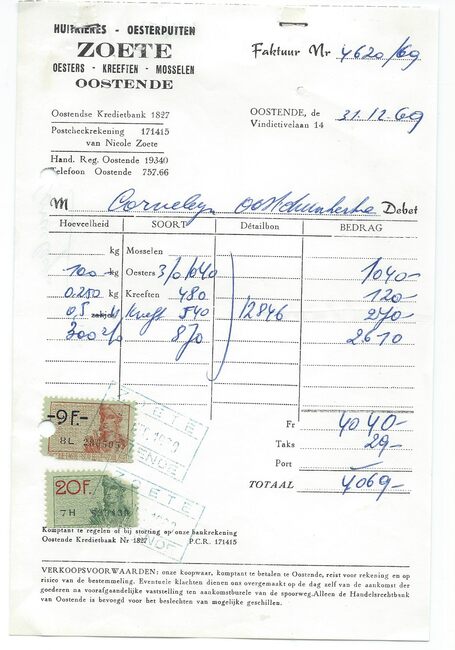 HUITRIERES - OESTERPUTTEN
ZOETE
OESTERS - KREEFTEN - MOSSELEN
OOSTENDE
Faktuur Nr 4620/69
Oostendse Kredietbank 1827
Postcheckrekening 171415
van Nicole Zoete
Hand. Reg. Oostende 19340
Telefoon Oostende 757.66
OOSTENDE, de 31.12.69
Vindictivelaan 14
M Debet
Hoeveelheid SOORT Détailbon BEDRAG
kg Mosselen
100 kg Oesters 3/0/040 1040-
0.250 kg Kreeften 480 120-
0,5 Kreeft 540 12846 270-
300 870 2610
Fr 4040-
Taks 29-
Port
TOTAAL 4069-
-9F.-
8L
20F.
7H
ZOETE
ZOETE
Komptant te regelen of bij storting op onze bankrekening
Oostende Kredietbank Nr 1827 P.C.R. 171415
VERKOOPSVOORWAARDEN: onze koopwaar, komptant te betalen te Oostende, reist voor rekening en op
risico van de bestemmeling. Eventuele klachten dienen ons overgemaakt op de dag zelf van de aankomst der
goederen na voorafgaandelijke vaststelling ten aankomstburele van de spoorweg.Alleen de Handelsrechtbank
van Oostende is bevoegd voor het beslechten van mogelijke geschillen.